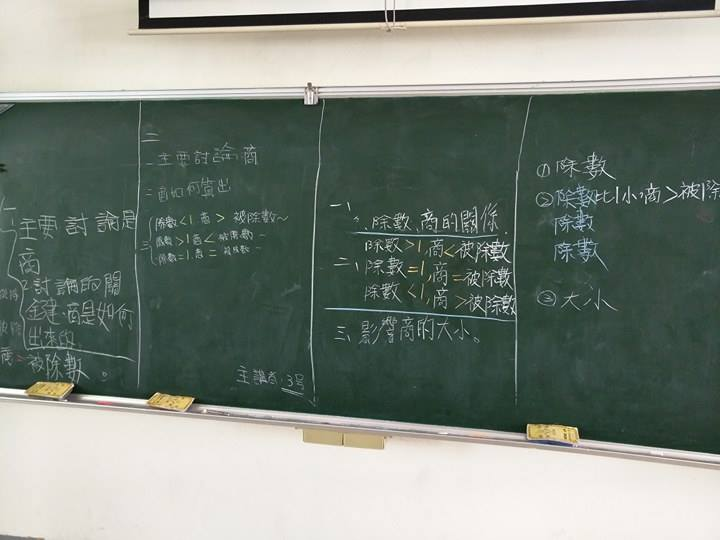 一、
主要討論是
商
2.討論的關
鍵.商是如何
出來的
商=被除數。
三
一主要討論商
二商如何算出
三 除數<1商> 被除數~
除數>1商< 被除數~
除數=1.商= 被除數~
主講者 3号
一、
、除數、商的關係.
除數>1,商<被除數
二、除數=1,商=被除數
除數<1,商>被除數
三、影響商的大小。
① 除數
② 除數比1小,商>被除
除數
除數
③ 大小